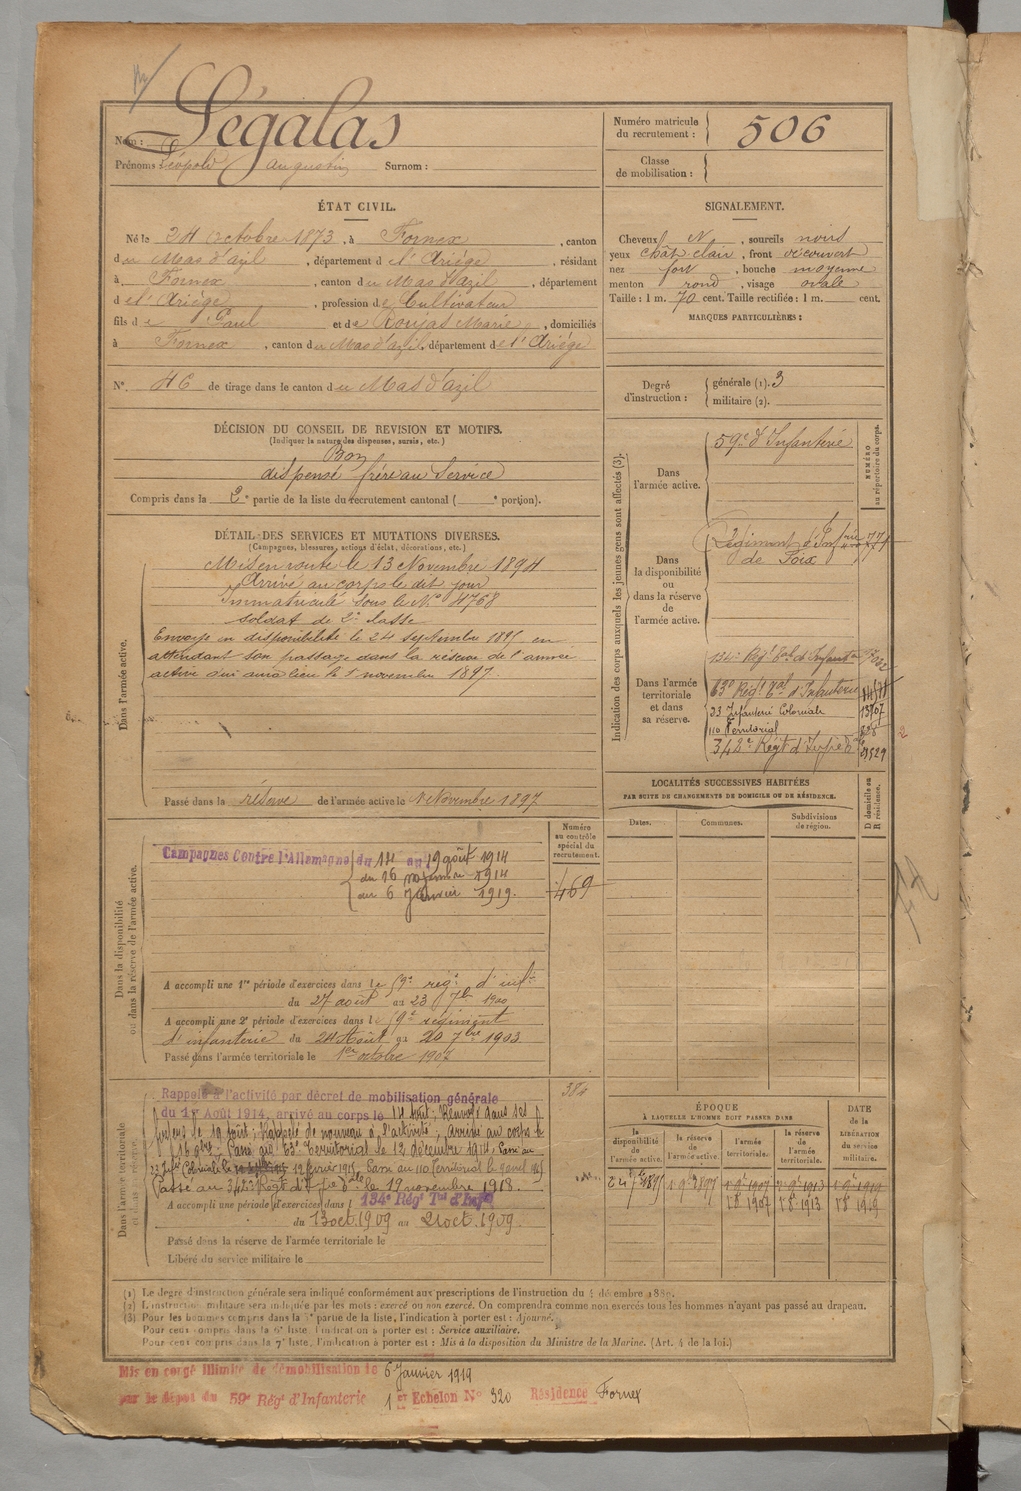 Nom : Ségalas
Prénoms : Léopold Augustin Surnom :
Numéro matricule du recrutement : 506
Classe de mobilisation :
ÉTAT CIVIL.
Né le 24 Octobre 1873, à Fornex, canton
du Mas d'azil, département de l'Ariège, résidant
à Fornex, canton du Mas d'azil, département
de l'Ariège, profession de Cultivateur
fils de Paul et de Roujas Marie, domiciliés
à Fornex, canton du Mas d'azil, département de l'Ariège
N° 46 de tirage dans le canton du Mas d'azil
SIGNALEMENT.
Cheveux N, sourcils noirs
yeux chât clair, front découvert
nez fort, bouche moyenne
menton rond, visage ovale
Taille : 1 m. 70 cent. Taille rectifiée : 1 m. cent.
MARQUES PARTICULIÈRES :
Degré d'instruction : générale (1). 3
militaire (2).
DÉCISION DU CONSEIL DE REVISION ET MOTIFS.
(Indiquer la nature des dispenses, sursis, etc.)
Bon
dispensé frère au Service
Compris dans la 2e partie de la liste du recrutement cantonal ( e portion).
DÉTAIL DES SERVICES ET MUTATIONS DIVERSES.
(Campagnes, blessures, actions d'éclat, décorations, etc.)
Dans l'armée active.
Mis en route le 13 Novembre 1894
Arrivé au corps le dit jour
Immatriculé sous le N° 4768
soldat de 2e classe
Envoyé en disponibilité le 24 septembre 1895 en
attendant son passage dans la réserve de l'armée
active qui aura lieu le 1er novembre 1897.
Passé dans la réserve de l'armée active le 1er Novembre 1897
Indication des corps auxquels les jeunes gens sont affectés (3).
NUMÉRO au répertoire du corps.
Dans l'armée active.
59e d'Infanterie
Dans la disponibilité ou dans la réserve de l'armée active.
Régiment d'Infrie
de Foix
Dans l'armée territoriale et dans sa réserve.
134e Régt Tal d'Infanterie
63e Régt Tal d'Infanterie
33 Infanterie Coloniale 13707
110 Territorial
342e Régt d'Infie 21529
LOCALITÉS SUCCESSIVES HABITÉES
PAR SUITE DE CHANGEMENTS DE DOMICILE OU DE RÉSIDENCE.
Dates. Communes. Subdivisions de région. D domicile ou R résidence.
Dans la disponibilité ou dans la réserve de l'armée active.
Numéro au contrôle spécial du recrutement.
469
Campagnes Contre l'Allemagne du 14 au 19 août 1914
du 16 novembre 1914
au 6 Janvier 1919.
A accompli une 1re période d'exercices dans le 59e régt d'infie
du 27 août au 23 7bre 1900
A accompli une 2e période d'exercices dans le 59e régiment
d'infanterie du 24 Août au 20 7bre 1903
Passé dans l'armée territoriale le 1er octobre 1907
Dans l'armée territoriale et dans sa réserve.
384
Rappelé à l'activité par décret de mobilisation générale
du 1er Août 1914, arrivé au corps le 14 Août; Renvoyé dans ses
foyers le 19 Août; Rappelé de nouveau à l'activité; Arrivé au corps le
16 9bre. Passé au 63e Territorial le 12 décembre 1914, Passé au
33 Infie Coloniale le 12 février 1915, Passé au 110 Territorial le 9 avril 1915
Passé au 342e Régt d'Infie le 19 novembre 1918.
A accompli une période d'exercices dans l 134e Régt Tal d'Infie
du 13 oct. 1909 au 21 oct. 1909.
Passé dans la réserve de l'armée territoriale le
Libéré du service militaire le
ÉPOQUE
À LAQUELLE L'HOMME DOIT PASSER DANS
DATE de la LIBÉRATION du service militaire.
la disponibilité de l'armée active. la réserve de l'armée active. l'armée territoriale. la réserve de l'armée territoriale.
24 7bre 1895 1 9bre 1897 1 9bre 1907 1 9bre 1913 1 9bre 1919
1 8 1907 1 8 1913 1 8 1919
(1) Le degré d'instruction générale sera indiqué conformément aux prescriptions de l'instruction du 4 décembre 1889.
(2) L'instruction militaire sera indiquée par les mots : exercé ou non exercé. On comprendra comme non exercés tous les hommes n'ayant pas passé au drapeau.
(3) Pour les hommes compris dans la partie de la liste, l'indication à porter est : Ajourné.
Pour ceux compris dans la 6e liste, l'indication à porter est : Service auxiliaire.
Pour ceux compris dans la 7e liste, l'indication à porter est : Mis à la disposition du Ministre de la Marine. (Art. 4 de la loi.)
Mis en congé illimité de démobilisation le 6 Janvier 1919
par le dépôt du 59e Régt d'Infanterie 1er Echelon N° 320 Résidence Fornex